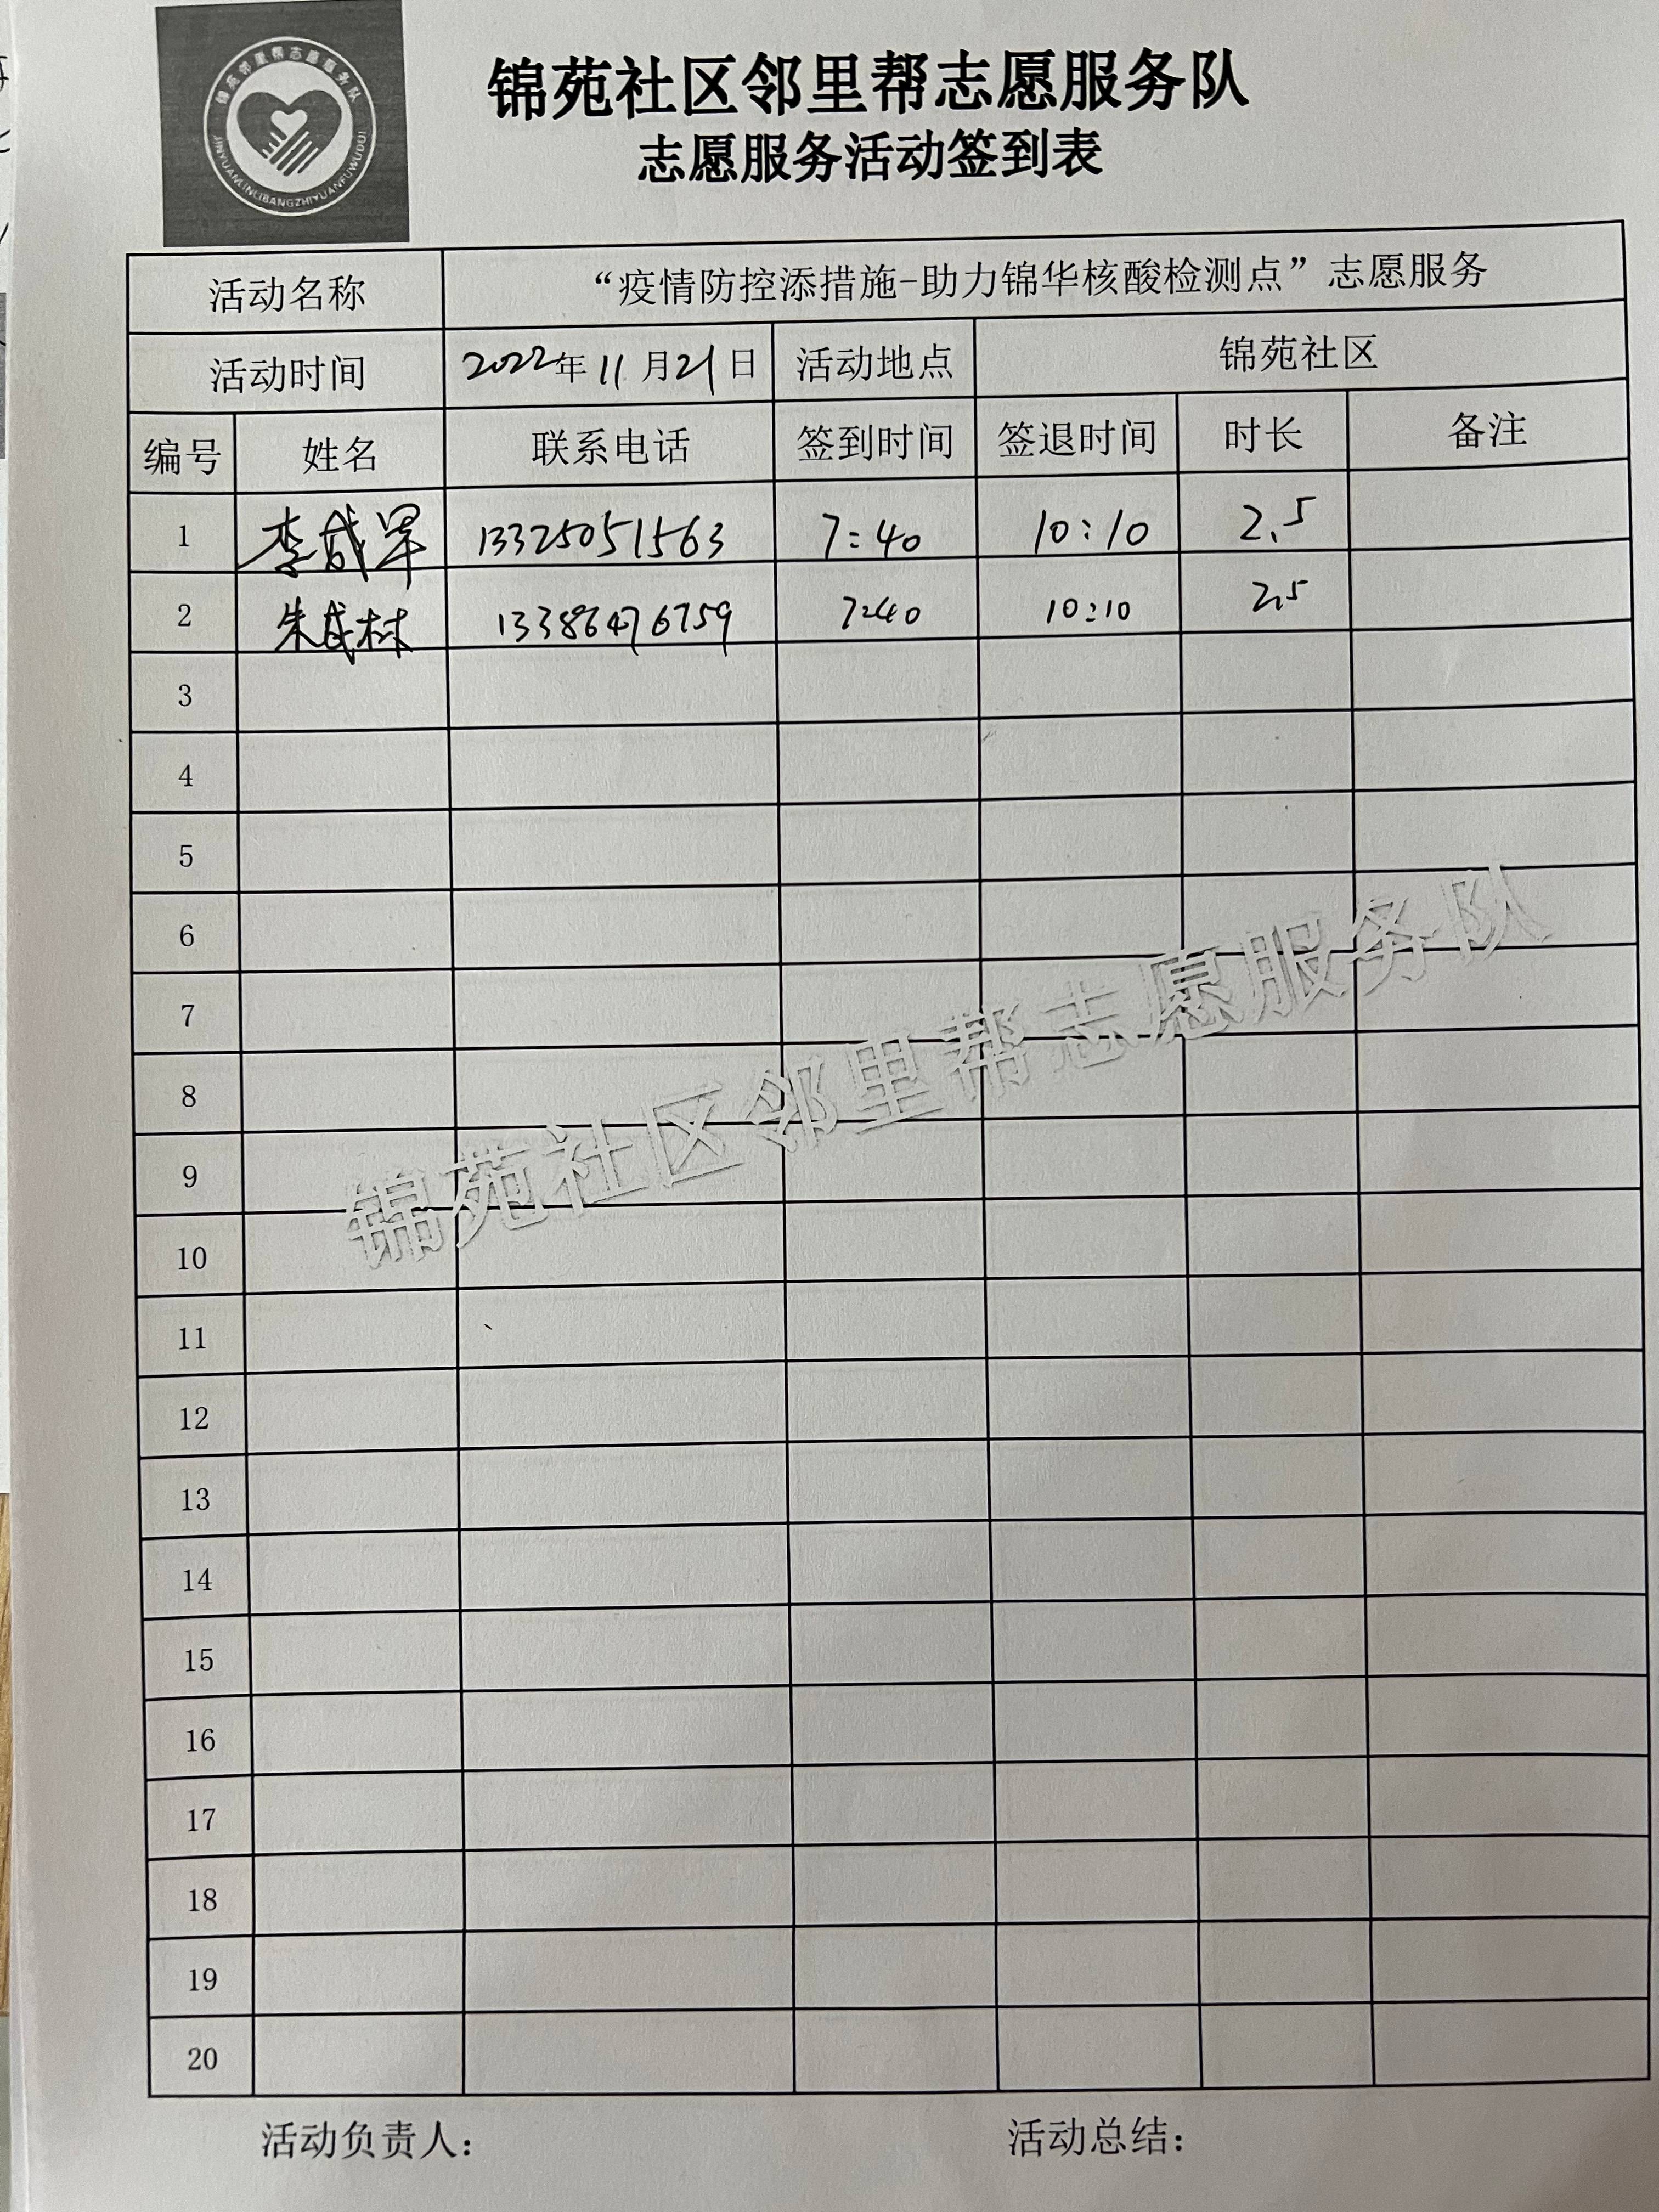 锦苑邻里帮志愿服务队
JINYUANLINLIBANGZHIYUANFUWUDUI
锦苑社区邻里帮志愿服务队
志愿服务活动签到表
活动名称 “疫情防控添措施-助力锦华核酸检测点”志愿服务
活动时间 2022年11月21日 活动地点 锦苑社区
编号 姓名 联系电话 签到时间 签退时间 时长 备注
1 李成军 13325051563 7:40 10:10 2.5
2 朱成林 13386476759 7:40 10:10 2.5
3
4
5
6
7
8
9
10
11
12
13
14
15
16
17
18
19
20
锦苑社区邻里帮志愿服务队
活动负责人： 活动总结：